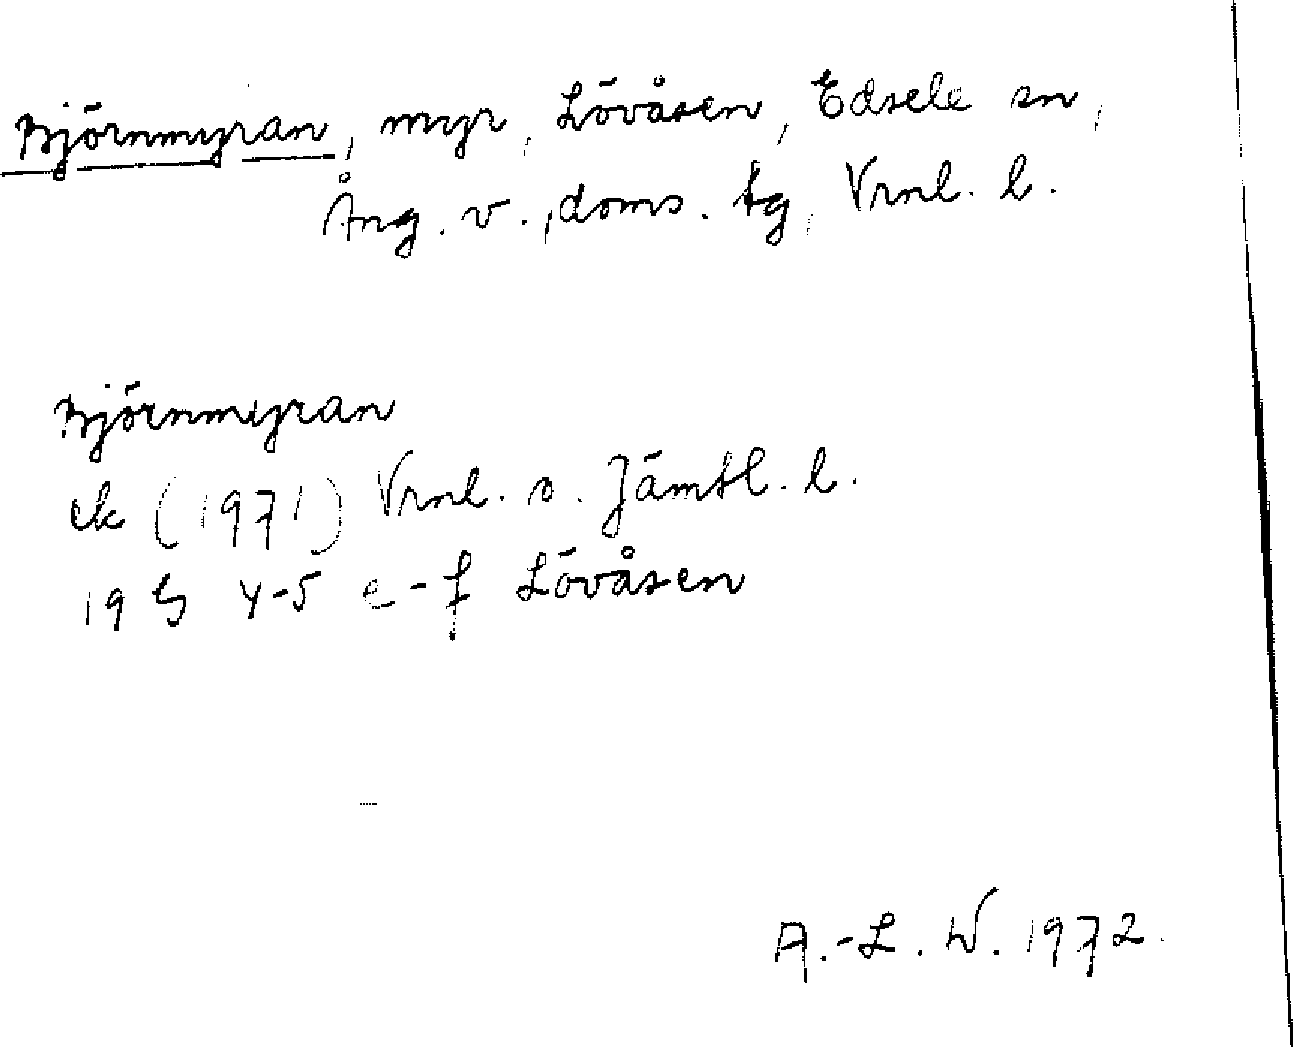 Björnmyran, myr, Lövåsen, Edsele sn,
Ång. v., doms. tg, Vrnl. l.
Björnmyran
ek (1971) Vrnl. o. Jämtl. l.
19 G 4-5 e-f Lövåsen
A.-L. W. 1972.